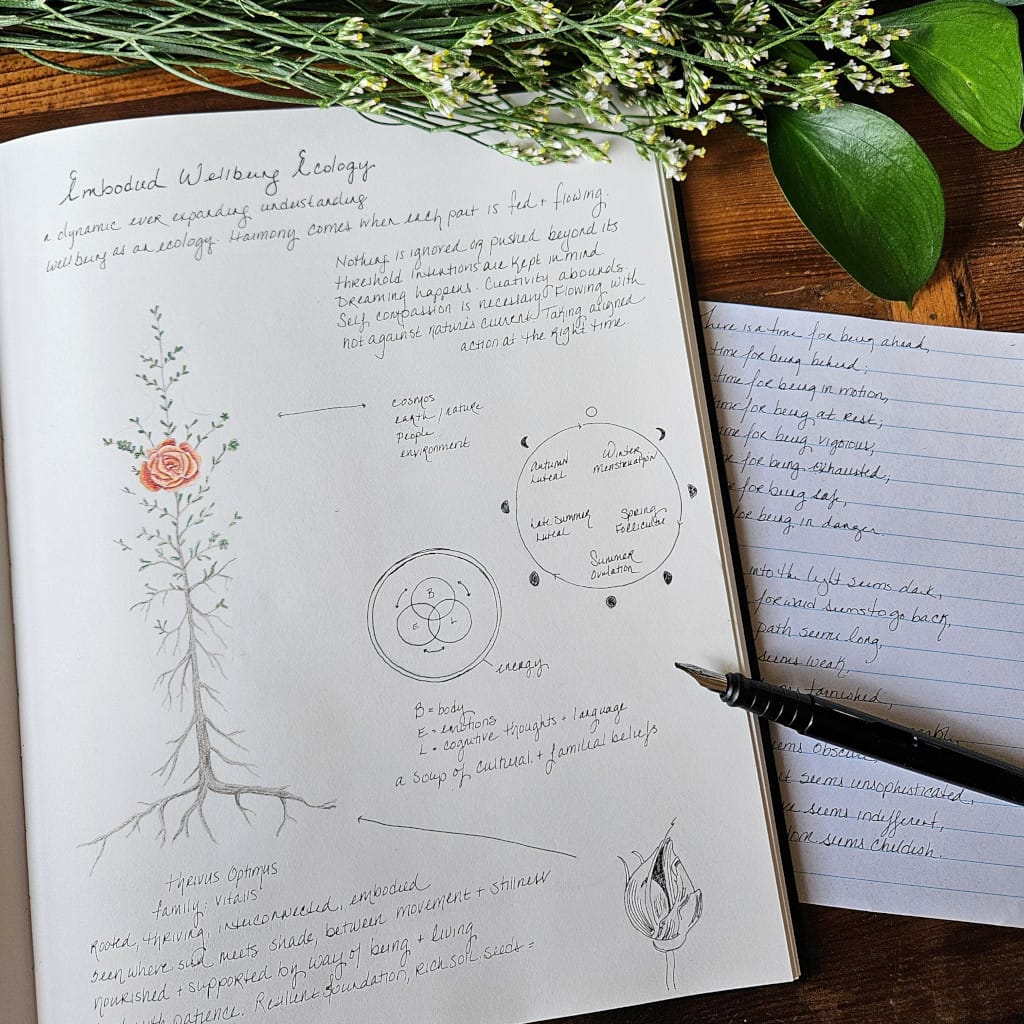 Embodied Wellbeing Ecology
a dynamic ever expanding understanding
wellbeing as an ecology. Harmony comes when each part is fed + flowing.
Nothing is ignored or pushed beyond its
threshold intentions are kept in mind.
Dreaming happens. Creativity abounds.
Self compassion is necessary. Flowing with
not against natures current. Taking aligned
action at the right time.
cosmos
earth / nature
people
environment
Autumn
Luteal
Winter
Menstruation
Late Summer
Luteal
Spring
Follicular
Summer
Ovulation
B
E
L
energy
B = body
E = emotions
L = cognitive thoughts + language
a soup of cultural + familial beliefs
Thrivus Optimus
family: Vitalis
Rooted, thriving, interconnected, embodied
seen where sun meets shade, between movement + stillness
nourished + supported by way of being + living
with patience. Resilient foundation, rich soil, seeds =
There is a time for being ahead,
time for being behind;
time for being in motion,
time for being at rest;
time for being vigorous,
for being exhausted;
for being safe,
for being in danger.
into the light seems dark,
forward seems to go back,
path seems long,
seems weak,
seems tarnished,
seems obscure,
seems unsophisticated,
seems indifferent,
seems childish.